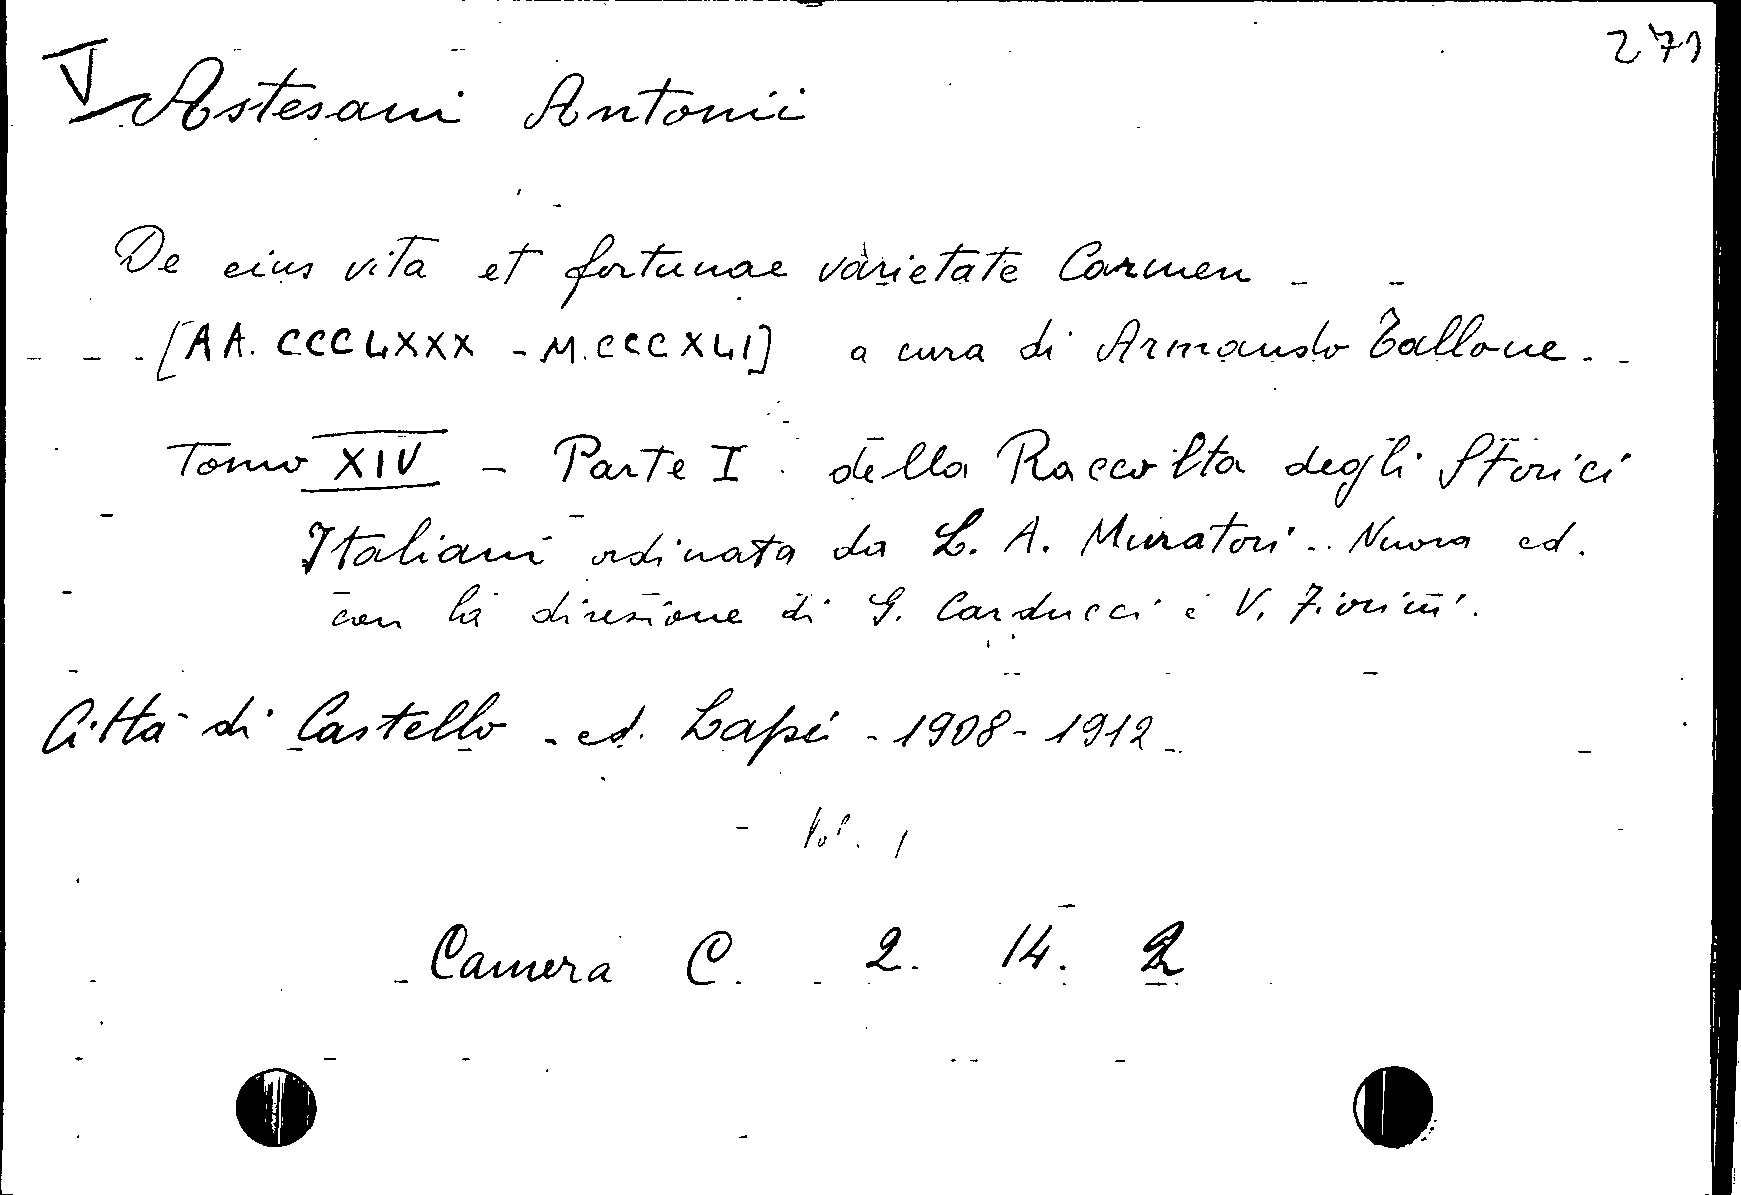 271
V Astesani Antonii
De eius vita et fortunae varietate Carmen -
[AA. CCCLXXX - M.CCCXLI] a cura di Armando Tallone.
Tomo XIV - Parte I della Raccolta degli Storici
Italiani ordinata da L. A. Muratori. Nuova ed.
con la direzione di G. Carducci e V. Fiorini.
Città di Castello - ed. Lapi - 1908-1912
Vol. 1
Camera C. 2. 14. 2